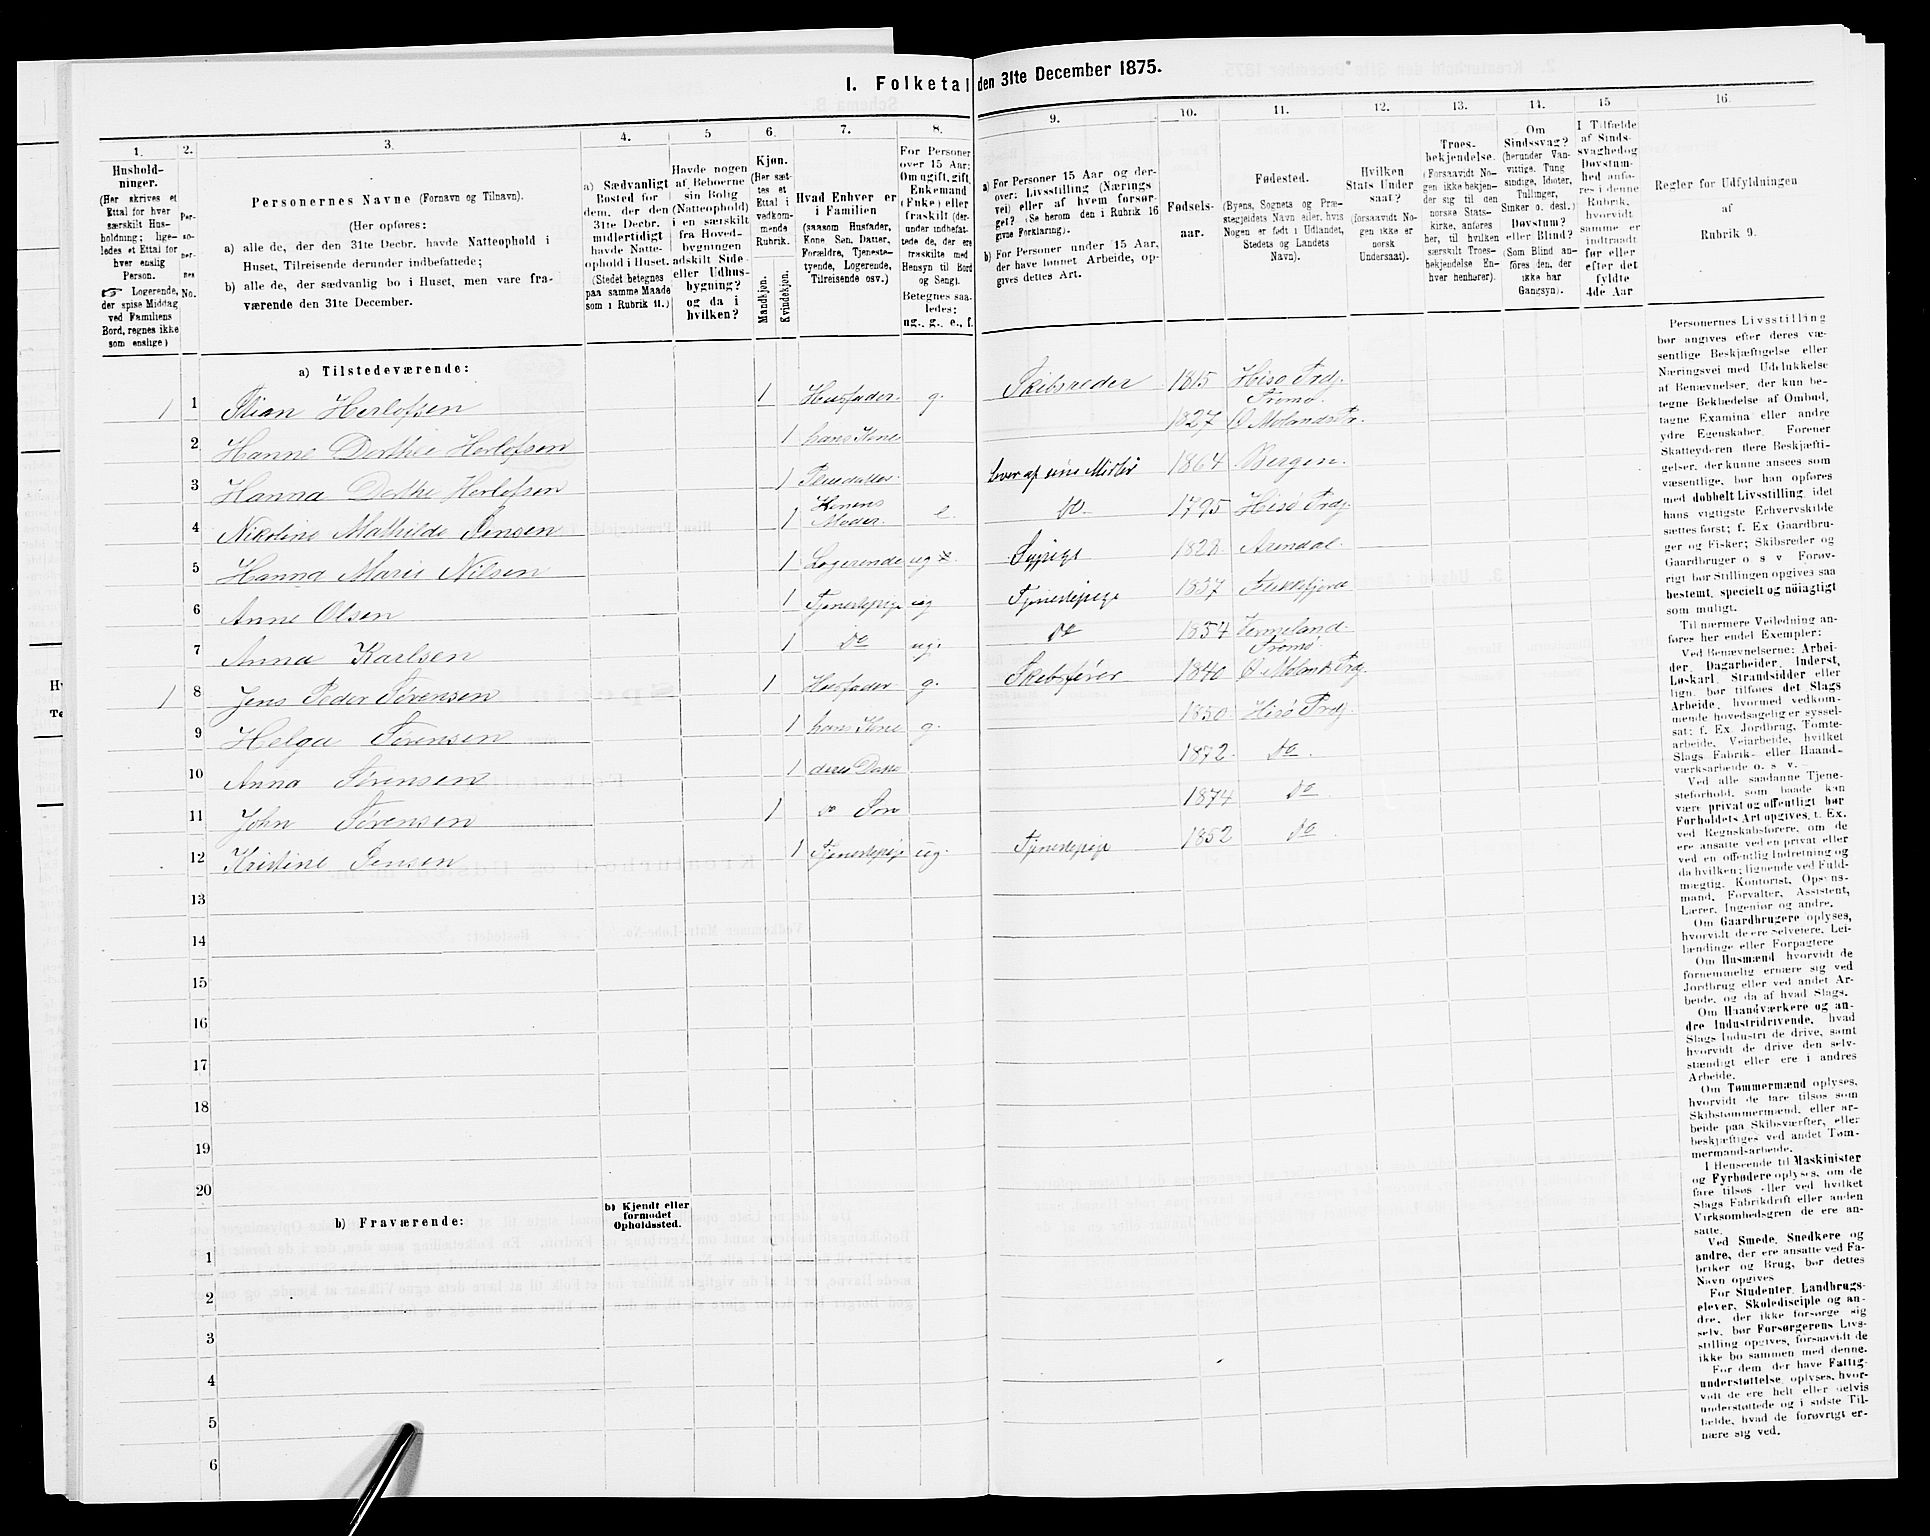 I. Folketal den 31te December 1875.
1.
2.
3.
4.
5
6.
7.
8.
9.
10.
11.
12.
13.
14.
15
16.
Hushold-
ninger.
(Her skrives et
Ettal for hver
særskilt Hus-
holdning; lige-
ledes et Ettal for
hver enslig
Person.
☞ Logerende,
der spise Middag
ved Familiens
Bord, regnes ikke
som enslige)
Per-
so-
ner-
nes
No.
Personernes Navne (Fornavn og Tilnavn).
(Her opføres:
a) alle de, der den 31te Decbr. havde Natteophold i
Huset, Tilreisende derunder indbefattede;
b) alle de, der sædvanlig bo i Huset, men vare fra-
værende den 31te December.
a) Sædvanligt
Bosted for
dem, der den
31te Decbr.
midlertidigt
havde Natte-
ophold i Huset.
(Stedet betegnes
paa samme Maade
som i Rubrik 11.)
Havde nogen
af Beboerne
sin Bolig
(Natteophold)
i en særskilt
fra Hoved-
bygningen
adskilt Side-
eller Udhus-
bygning?
og da i
hvilken?
Kjøn.
(Her sæt-
tes et
Ettal i
vedkom-
mende
Rubrik.
Mandkjøn.
Kvindekjøn.
Hvad Enhver er
i Familien
(saasom Husfader,
Kone Søn, Datter,
Forældre, Tjeneste-
tyende, Logerende,
Tilreisende osv.)
For Personer
over 15 Aar:
Om ugift, gift,
Enkemand
(Enke) eller
fraskilt (der-
under indbefat-
tede de, der ere
fraskilte med
Hensyn til Bord
og Seng).
Betegnes saa-
ledes:
ug., g., e., f.
a) For Personer 15 Aar og der-
over: Livsstilling (Nærings
vei) eller af hvem forsør-
get? (Se herom den i Rubrik 16
givne Forklaring).
b) For Personer under 15 Aar,
der have lønnet Arbeide, op-
gives dettes Art.
Fødsels-
aar.
Fødested.
(Byens, Sognets og Præ-
stegjeldets Navn eller, hvis
Nogen er født i Udlandet,
Stedets og Landets
Navn).
Hvilken
Stats Under
saat?
(forsaavidt No-
gen ikke er
norsk
Undersaat).
Troes-
bekjendelse.
(Forsaavidt No-
gen ikke bekjen-
der sig til den
norske Stats-
kirke, anføres
her, til hvilken
særskilt Troes-
bekjendelse En-
hver henhører).
Om
Sindssvag?
(herunder Van-
vittige, Tung
sindige, Idioter,
Tullinger,
Sinker o. desl.)
Døvstum?
eller Blind?
(Som Blind an-
føres den, der
ikke har
Gangsyn).
I Tilfælde
af Sinds-
svaghed og
Døvstum-
hed anfø-
res i denne
Rubrik,
hvorvidt
samme er
indtraadt
før eller
efter det
fyldte
4de Aar
Regler for Udfyldningen
af
Rubrik 9.
a) Tilstedeværende:
1 1 Stian Herlofsen 1 Husfader. g. Skibsreder 1815 Hisø Prdj.
2 Hanne Dorthe Herlofsen 1 hans Kone 1827 Tromø. Ø Molands Pr.
3 Hanna Dorthe Herlofsen 1 1864 Bergen.
4 Nikoline Mathilde Jensen 1 Konens Moder. e. do. 1795 Hisø Prdj.
5 Hanna Marie Nilsen 1 Logerende ug Sypige Arendal.
6 Anne Olsen 1 Tjenestepige ug Tjenestepige 1837 Flekkefjord
7 Anna Karlsen 1 do ug. do 1854 Vermeland.
1 8 Jens Peder Sørensen 1 Husfader g. Skibsfører 1840 Tromø. Ø. Molands Prdj.
9 Helga Sørensen 1 hans Kone g. 1850 Hisø Prdj.
10 Anna Sørensen 1 deres Datter 1872 do.
11 John Sørensen 1 do Søn 1874 do
12 Kristine Jensen 1 Tjenestepige ug. Tjenestepige 1852 do
13
14
15
16
17
18
19
20
b) Fraværende:
b) Kjendt eller
formodet
Opholdssted.
1
2
3
4
5
6
Personernes Livsstilling
bør angives efter deres væ-
sentlige Beskjæftigelse eller
Næringsvei med Udelukkelse
af Benævnelser, der kun be-
tegne Beklædelse af Ombud,
tagne Examina eller andre
ydre Egenskaber. Forener
Skatteyderen flere Beskjæfti-
gelser, der kunne ansees som
væsentlige, bør han opføres
med dobbelt Livsstilling, idet
hans vigtigste Erhvervskilde
sættes først; f. Ex Gaardbru-
ger og Fisker; Skibsreder og
Gaardbruger o s v Forøv-
rigt bør Stillingen opgives saa
bestemt, specielt og nöiagtigt
som muligt.
Til nærmere Veiledning an-
føres her endel Exempler:
Ved Benævnelserne: Arbei-
der, Dagarbeider, Inderst,
Løskarl, Strandsidder eller
lign. bør tilføies det Slags
Arbeide, hvormed vedkom-
mende hovedsagelig er syssel-
sat; f. Ex. Jordbrug, Tomte-
arbeide, Veiarbeide, hvilket
Slags Fabrik- eller Haand-
værksarbeide o. s. v. –
Ved alle saadanne Tjene-
steforhold, som baade kan
være privat og offentligt bør
Forholdets Art opgives, f. Ex.
ved Regnskabsførere, om de
ere ansatte ved en privat eller
ved en offentlig Indretning og
da hvilken; lignende ved Fuld-
mægtig, Kontorist, Opsyns-
mand, Forvalter, Assistent,
Lærer, Ingeniør og andre.
Om Gaardbrugere oplyses,
hvorvidt de ere Selveiere, Lei-
lændinge eller Forpagtere
Om Husmænd hvorvidt de
fornemmelig ernære sig ved
Jordbrug eller ved andet Ar-
beide, og da af hvad Slags.
Om Haandværkere og an-
dre Industridrivende, hvad
Slags Industri de drive, samt
hvorvidt de drive den selv-
stændigt eller ere i andres
Arbeide.
Om Tømmermænd oplyses,
hvorvidt de fare tilsøs som
Skibstømmermænd, eller ar-
beide paa Skibsværfter, eller
beskjæftiges ved andet Tøm-
mermandsarbeide.
I Henseende til Maskinister
og Fyrbødere oplyses, om de
fare tilsøs eller ved hvilket
Slags Fabrikdrift eller anden
Virksomhedsgren de ere an-
satte.
Ved Smede, Snedkere og
andre, der ere ansatte ved Fa-
briker og Brug, bør dettes
Navn opgives
For Studenter, Landbrugs-
elever, Skoledisciple og an-
dre, der ikke forsørge sig
selv, bør Forsørgerens Livs-
stilling opgives, forsaavidt de
ikke bo sammen med denne.
For dem, der have Fattig-
understøttelse, oplyses, hvor-
vidt de ere helt eller delvis
understøttede og i sidste Til-
fælde, hvad de forøvrigt er-
nære sig ved.